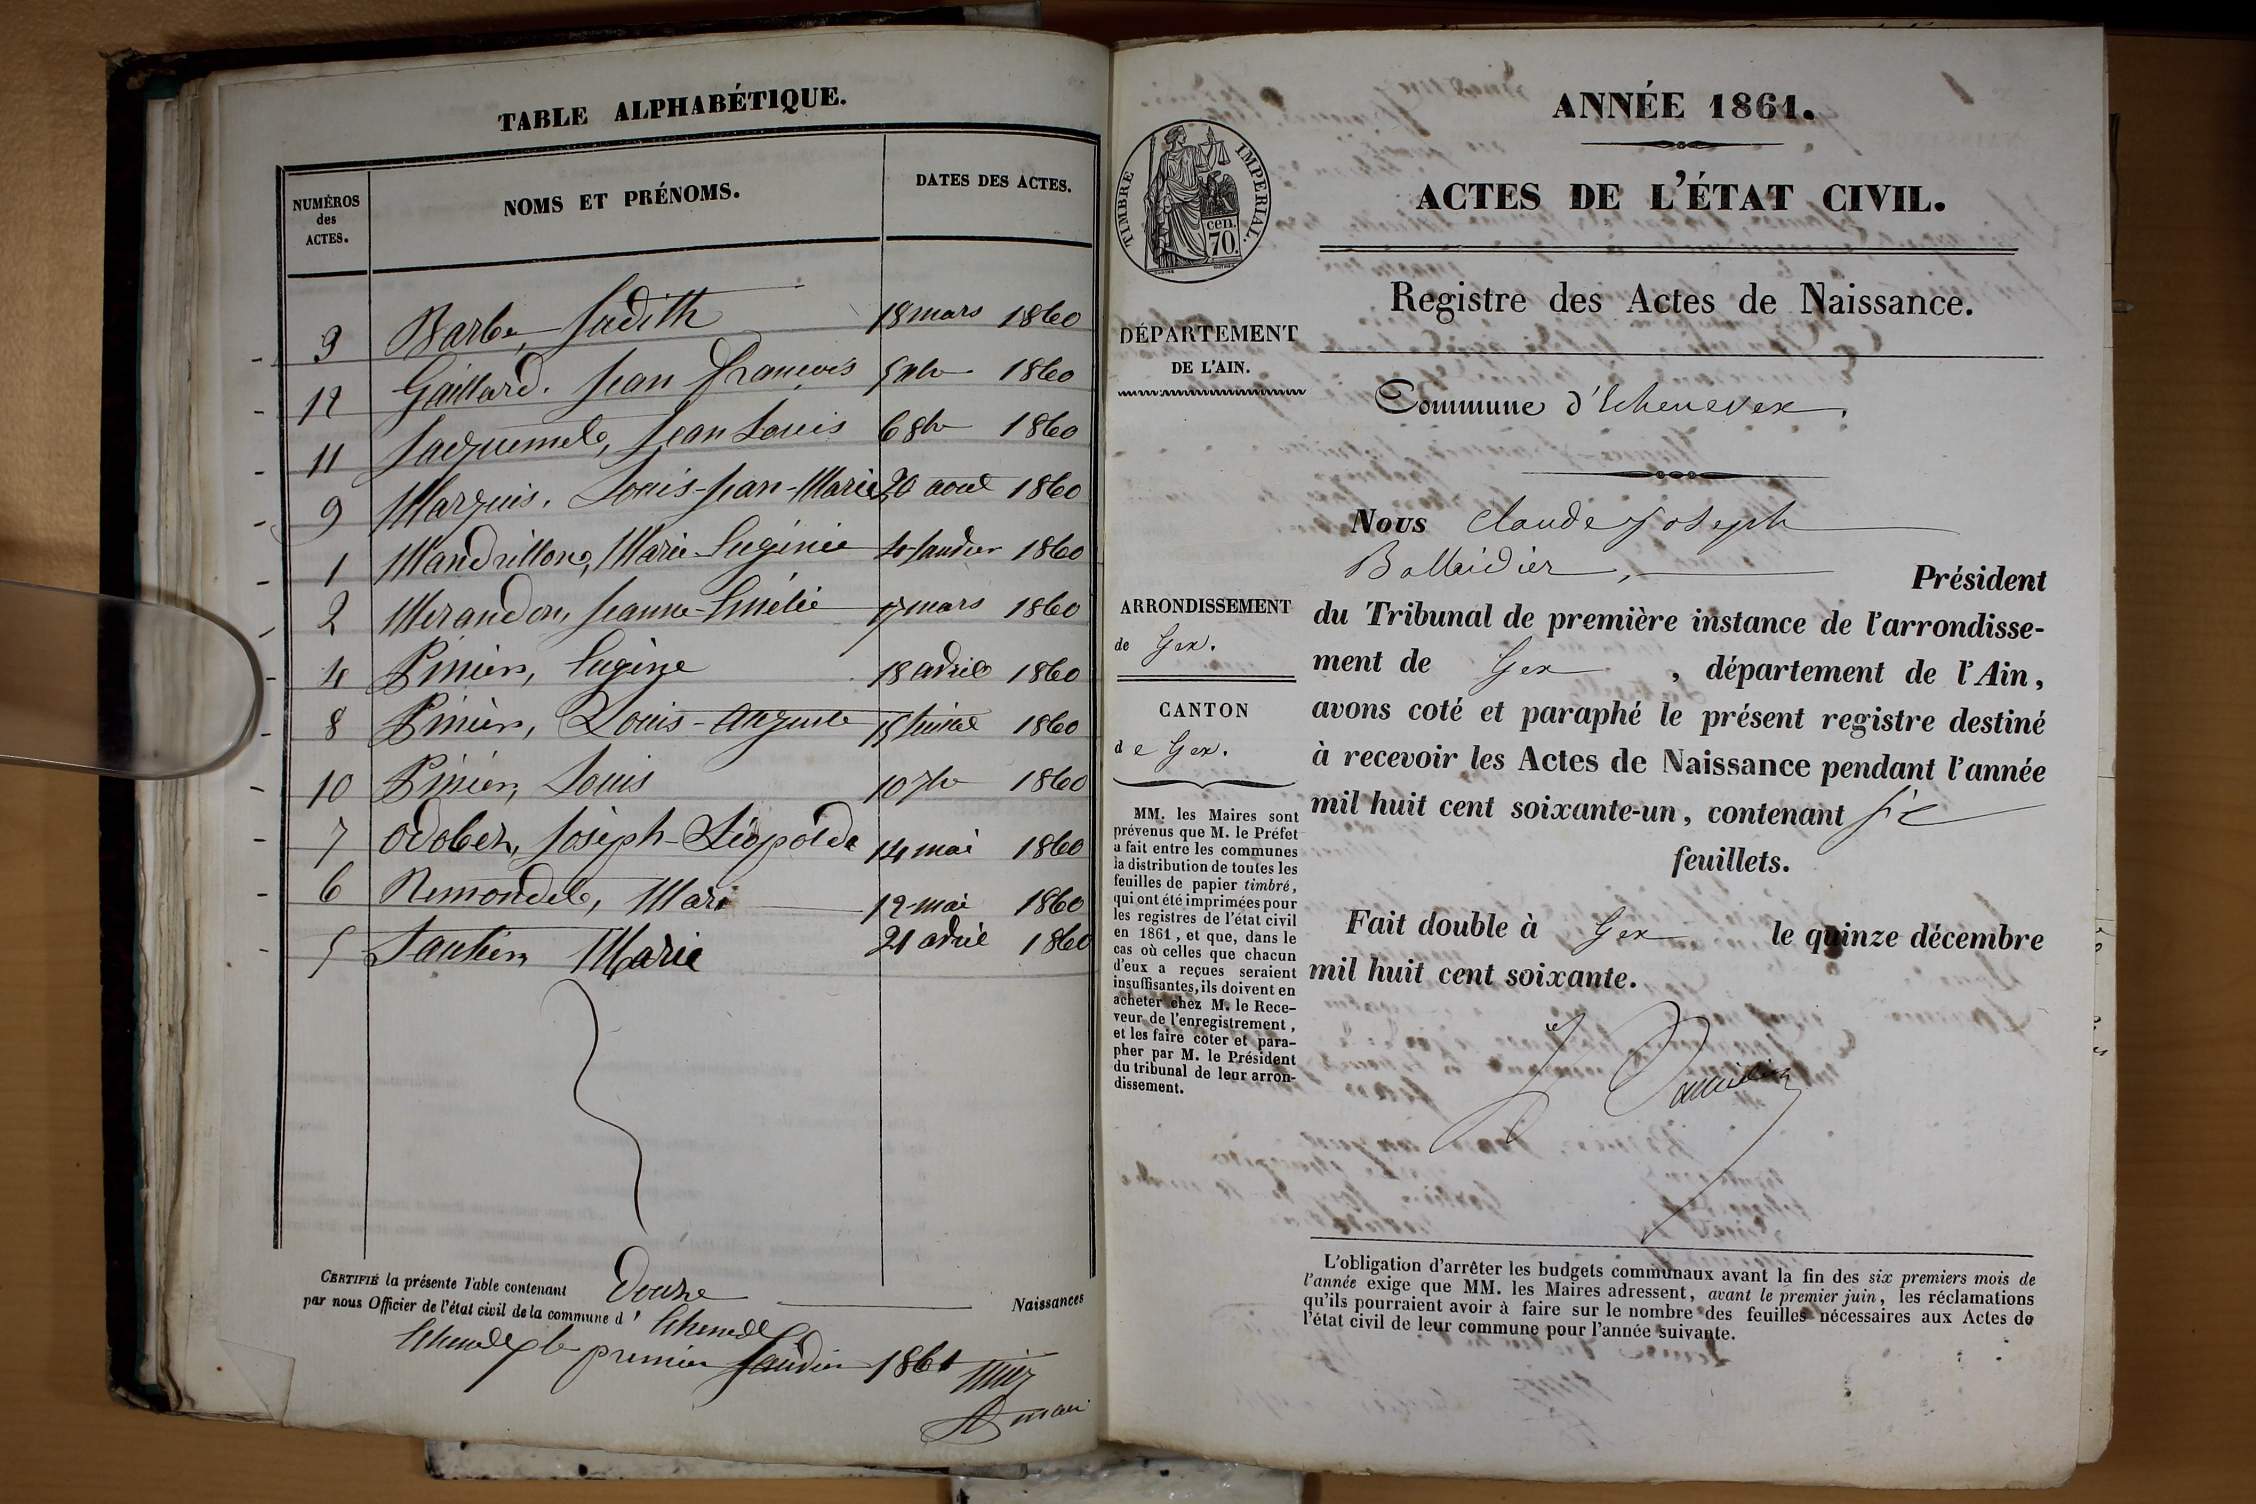 TABLE ALPHABÉTIQUE.
NUMÉROS
des
ACTES.
NOMS ET PRÉNOMS.
DATES DES ACTES.
3 Barbe, Judith 18 mars 1860
12 Gaillard. Jean François 1860
11 Jacquemet, Jean Louis 6 8bre 1860
9 Marquis. Louis-Jean-Marie 20 aout 1860
1 Mandrillon, Marie-Eugénie 1860
2 Merandon, Jeanne-Emélie 17 mars 1860
4 Pinier, Eugène 18 avril 1860
8 Pinier, Louis-Auguste 15 1860
10 Pinier, Louis 10 7bre 1860
7 Odobez, Joseph-Léopolde 14 mai 1860
6 Remondet, Mari 12 mai 1860
5 Marie 21 avril 1860
CERTIFIÉ la présente Table contenant Douze Naissances
par nous Officier de l'état civil de la commune d'
le premier Janvier 1861
ANNÉE 1861.
ACTES DE L'ÉTAT CIVIL.
TIMBRE IMPÉRIAL.
cen.
70.
Registre des Actes de Naissance.
DÉPARTEMENT
DE L'AIN.
Commune d'Echenevex.
Nous Claude Joseph
Président
du Tribunal de première instance de l'arrondisse-
ment de Gex, département de l'Ain,
avons coté et paraphé le présent registre destiné
à recevoir les Actes de Naissance pendant l'année
mil huit cent soixante-un, contenant six
feuillets.
Fait double à Gex le quinze décembre
mil huit cent soixante.
ARRONDISSEMENT
de Gex.
CANTON
de Gex.
MM. les Maires sont
prévenus que M. le Préfet
a fait entre les communes
la distribution de toutes les
feuilles de papier timbré,
qui ont été imprimées pour
les registres de l'état civil
en 1861, et que, dans le
cas où celles que chacun
d'eux a reçues seraient
insuffisantes, ils doivent en
acheter chez M. le Rece-
veur de l'enregistrement,
et les faire coter et para-
pher par M. le Président
du tribunal de leur arron-
dissement.
L'obligation d'arrêter les budgets communaux avant la fin des six premiers mois de
l'année exige que MM. les Maires adressent, avant le premier juin, les réclamations
qu'ils pourraient avoir à faire sur le nombre des feuilles nécessaires aux Actes de
l'état civil de leur commune pour l'année suivante.